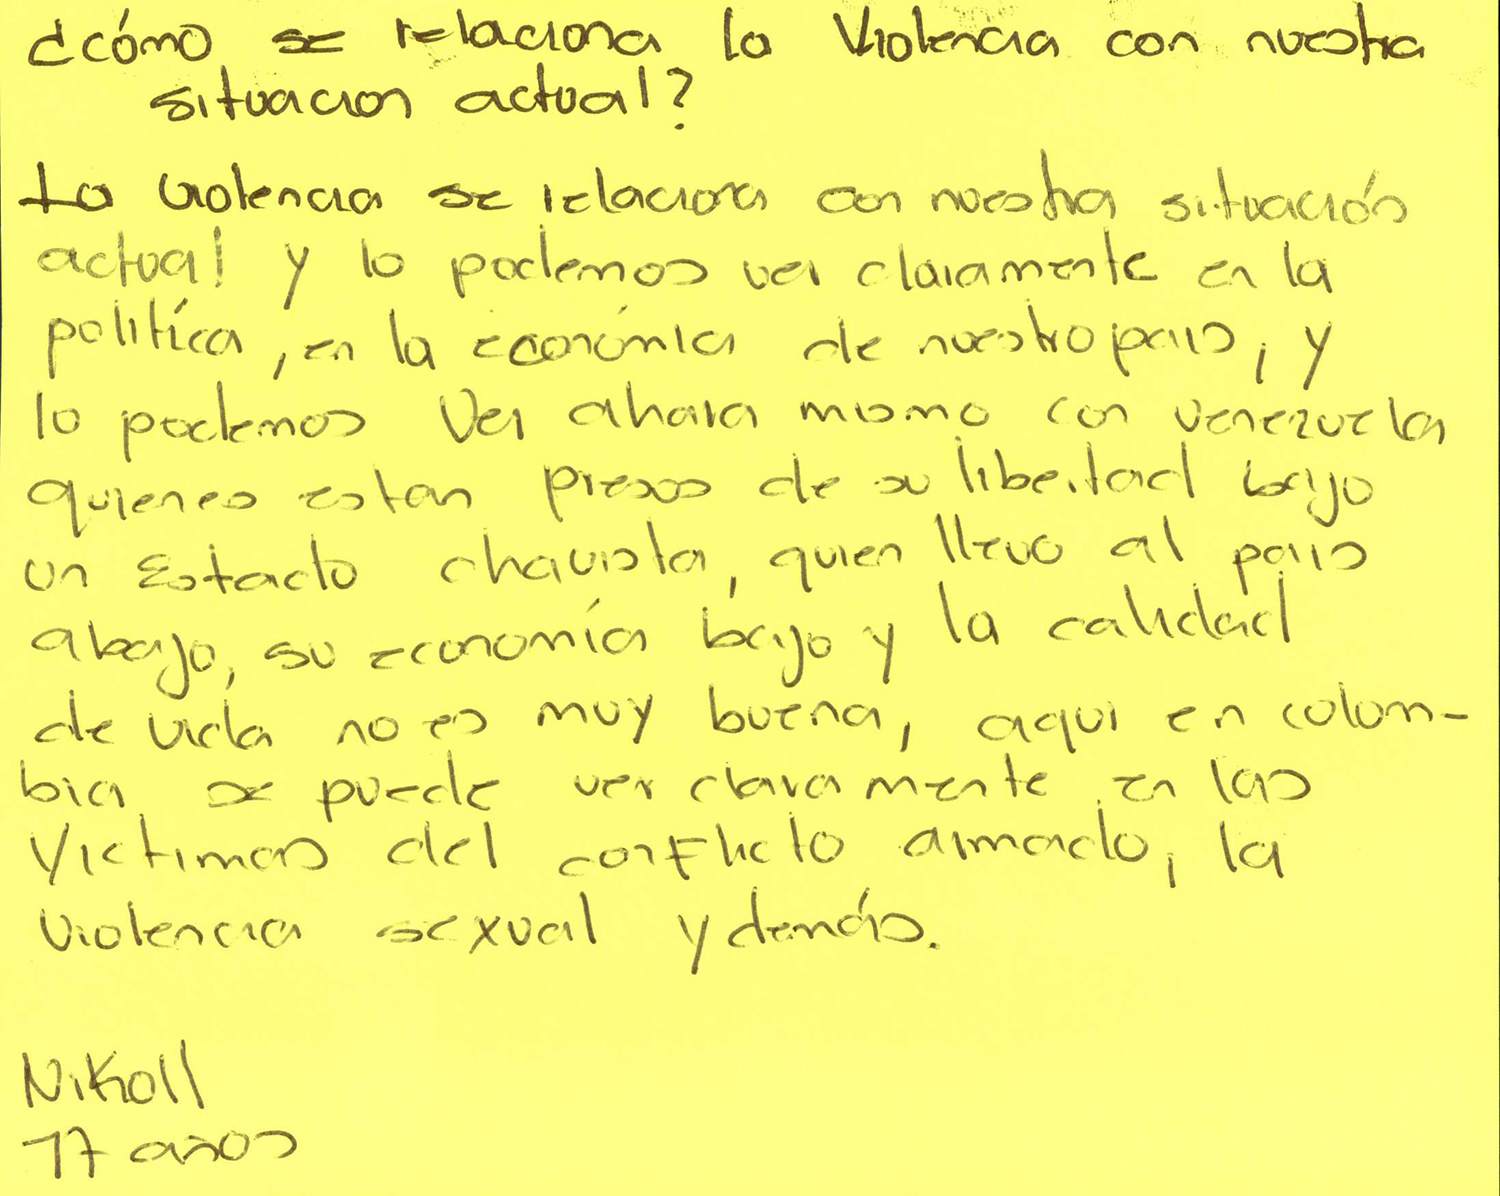 ¿cómo se relaciona la Violencia con nuestra
situacion actual?
La violencia se relaciona con nuestra situación
actual y lo podemos ver claramente en la
política, en la económia de nuestro pais, y
lo podemos ver ahara mismo con venezuela
quienes estan presos de su libertad bajo
un Estado chavista, quien llevo al pais
abajo, su economía bajo y la calidad
de vida no es muy buena, aqui en colom-
bia se puede ver claramente en las
victimas del conflicto armado, la
violencia sexual y demás.
Nikoll
17 años